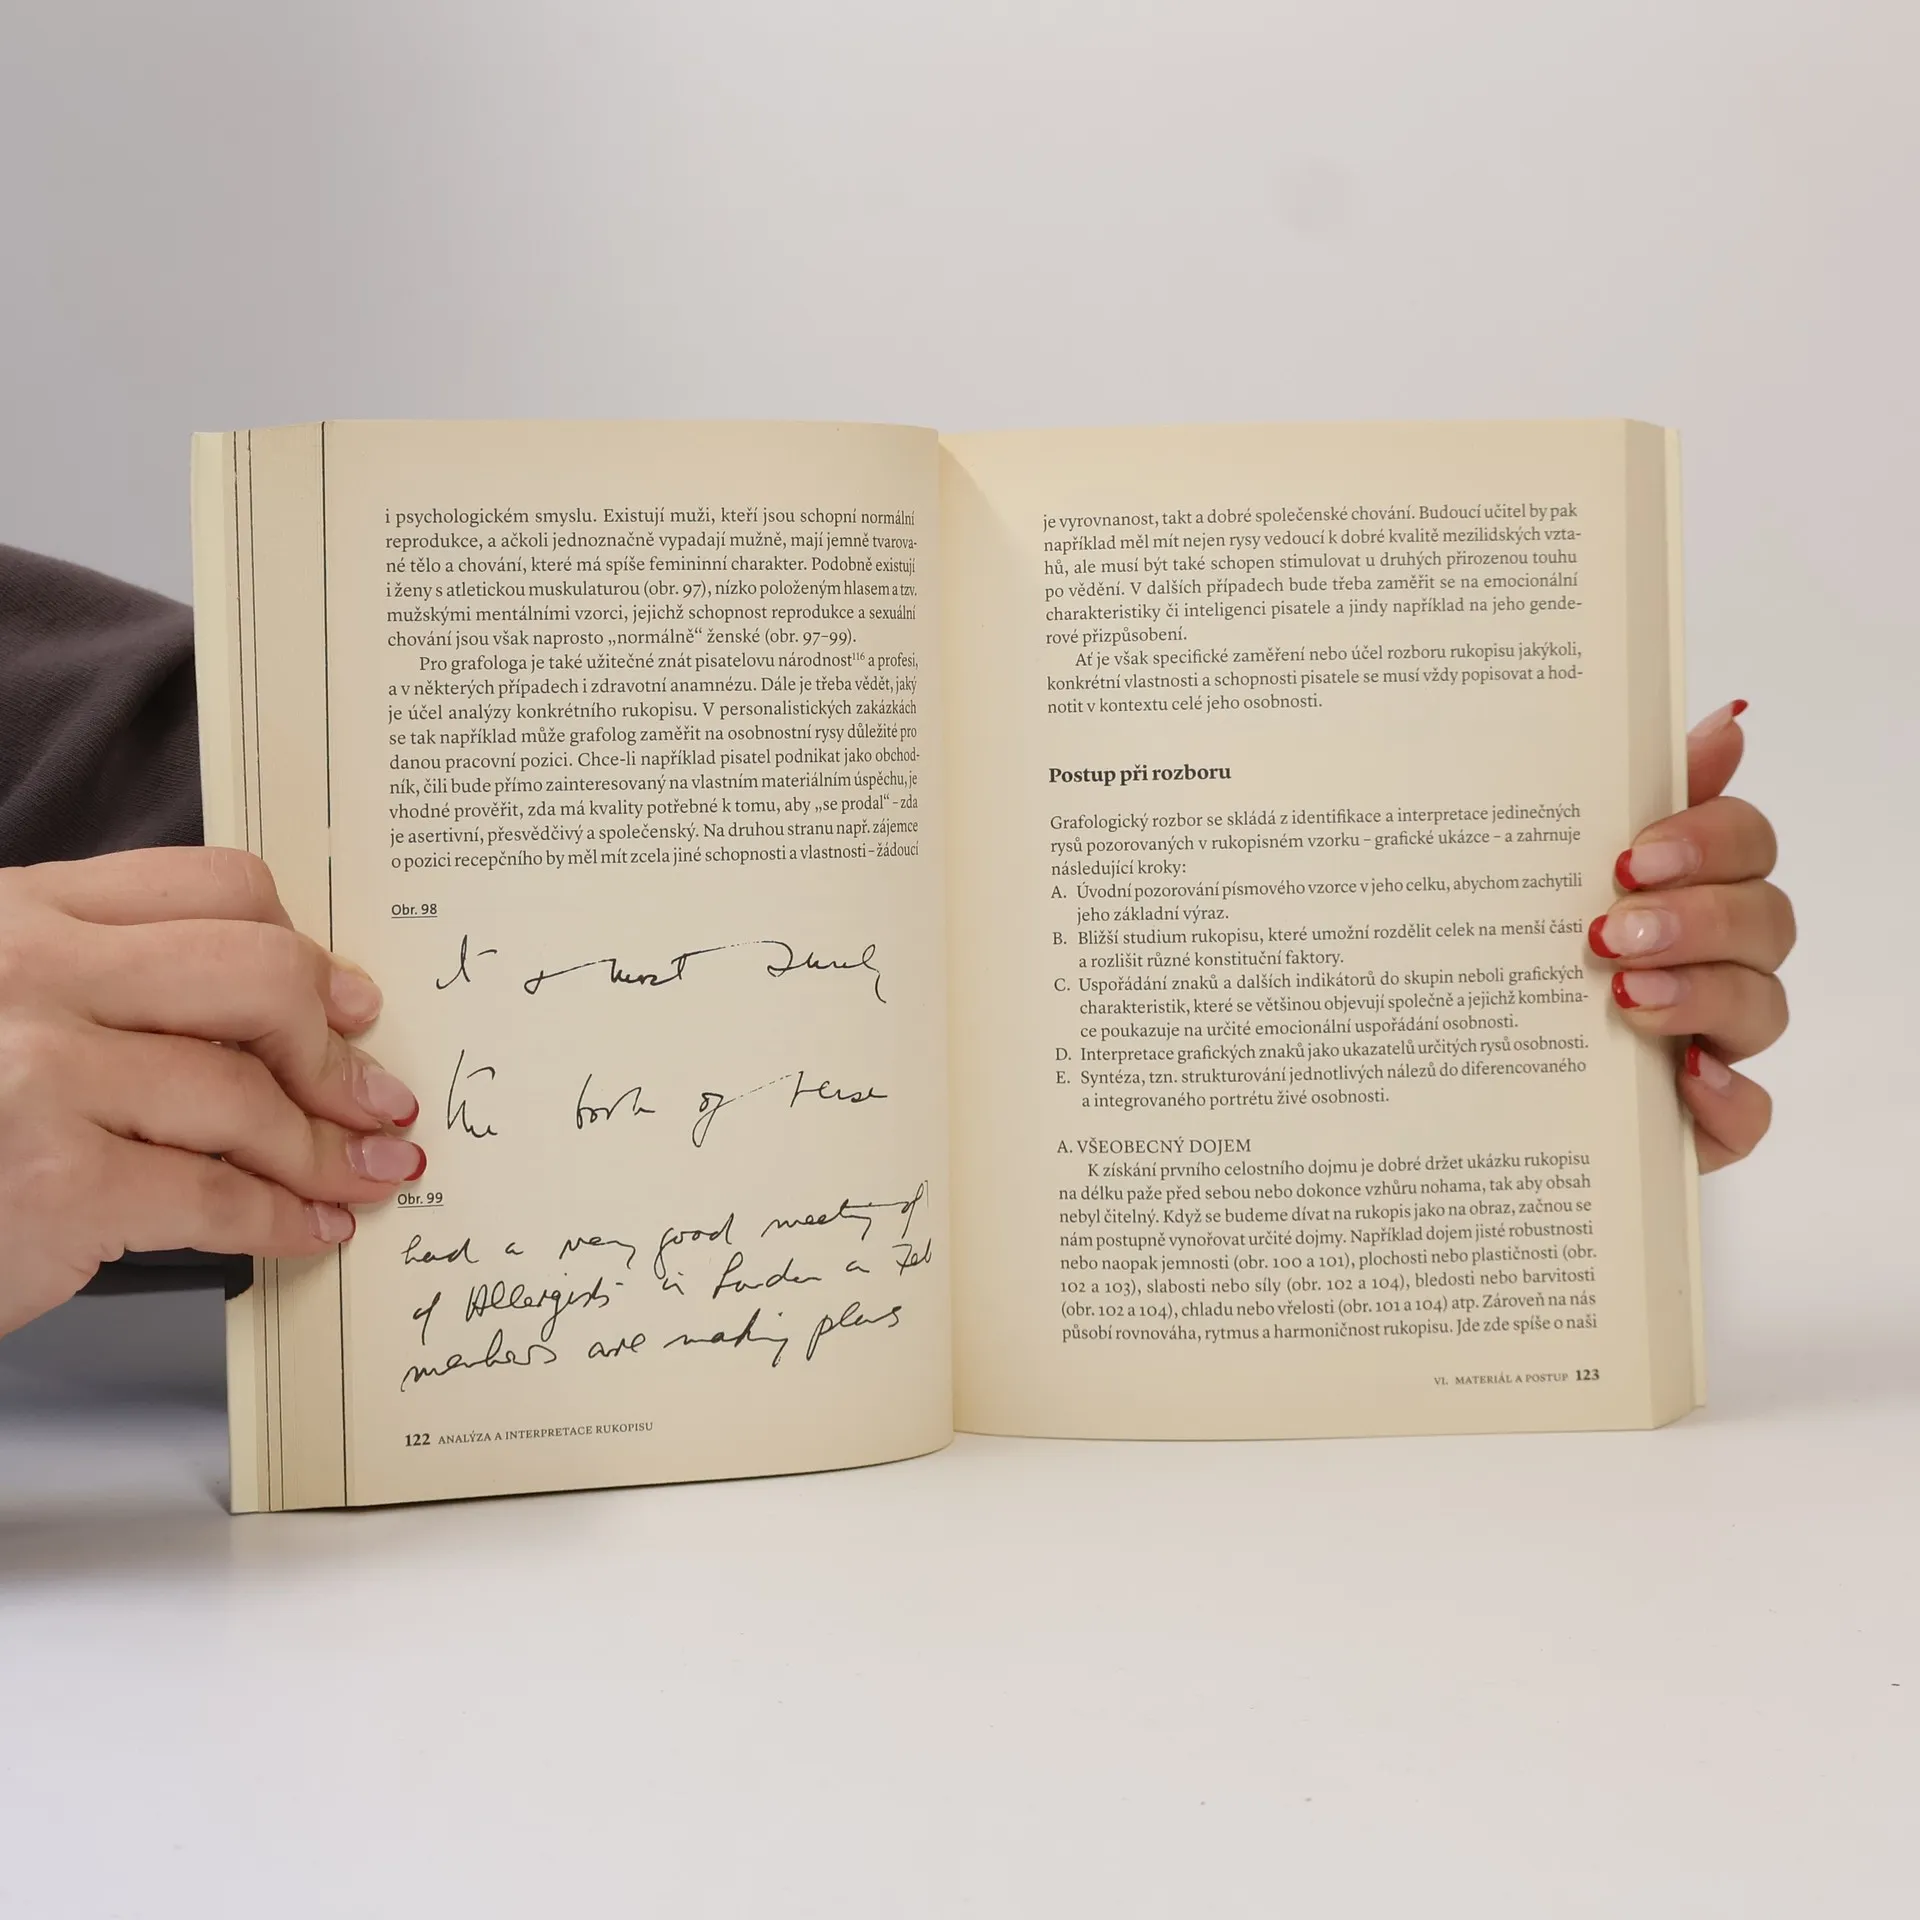 i psychologickém smyslu. Existují muži, kteří jsou schopní normální
reprodukce, a ačkoli jednoznačně vypadají mužně, mají jemně tvarova-
né tělo a chování, které má spíše femininní charakter. Podobně existují
i ženy s atletickou muskulaturou (obr. 97), nízko položeným hlasem a tzv.
mužskými mentálními vzorci, jejichž schopnost reprodukce a sexuální
chování jsou však naprosto „normálně“ ženské (obr. 97–99).
Pro grafologa je také užitečné znát pisatelovu národnost¹¹⁶ a profesi,
a v některých případech i zdravotní anamnézu. Dále je třeba vědět, jaký
je účel analýzy konkrétního rukopisu. V personalistických zakázkách
se tak například může grafolog zaměřit na osobnostní rysy důležité pro
danou pracovní pozici. Chce-li například pisatel podnikat jako obchod-
ník, čili bude přímo zainteresovaný na vlastním materiálním úspěchu, je
vhodné prověřit, zda má kvality potřebné k tomu, aby „se prodal“ – zda
je asertivní, přesvědčivý a společenský. Na druhou stranu např. zájemce
o pozici recepčního by měl mít zcela jiné schopnosti a vlastnosti – žádoucí
Obr. 98
most
the book of verse
Obr. 99
had a very good meeting of
of Allergists in London in Feb
members are making plans
122 ANALÝZA A INTERPRETACE RUKOPISU
je vyrovnanost, takt a dobré společenské chování. Budoucí učitel by pak
například měl mít nejen rysy vedoucí k dobré kvalitě mezilidských vzta-
hů, ale musí být také schopen stimulovat u druhých přirozenou touhu
po vědění. V dalších případech bude třeba zaměřit se na emocionální
charakteristiky či inteligenci pisatele a jindy například na jeho gende-
rové přizpůsobení.
Ať je však specifické zaměření nebo účel rozboru rukopisu jakýkoli,
konkrétní vlastnosti a schopnosti pisatele se musí vždy popisovat a hod-
notit v kontextu celé jeho osobnosti.
Postup při rozboru
Grafologický rozbor se skládá z identifikace a interpretace jedinečných
rysů pozorovaných v rukopisném vzorku – grafické ukázce – a zahrnuje
následující kroky:
A. Úvodní pozorování písmového vzorce v jeho celku, abychom zachytili
jeho základní výraz.
B. Bližší studium rukopisu, které umožní rozdělit celek na menší části
a rozlišit různé konstituční faktory.
C. Uspořádání znaků a dalších indikátorů do skupin neboli grafických
charakteristik, které se většinou objevují společně a jejichž kombina-
ce poukazuje na určité emocionální uspořádání osobnosti.
D. Interpretace grafických znaků jako ukazatelů určitých rysů osobnosti.
E. Syntéza, tzn. strukturování jednotlivých nálezů do diferencovaného
a integrovaného portrétu živé osobnosti.
A. VŠEOBECNÝ DOJEM
K získání prvního celostního dojmu je dobré držet ukázku rukopisu
na délku paže před sebou nebo dokonce vzhůru nohama, tak aby obsah
nebyl čitelný. Když se budeme dívat na rukopis jako na obraz, začnou se
nám postupně vynořovat určité dojmy. Například dojem jisté robustnosti
nebo naopak jemnosti (obr. 100 a 101), plochosti nebo plastičnosti (obr.
102 a 103), slabosti nebo síly (obr. 102 a 104), bledosti nebo barvitosti
(obr. 102 a 104), chladu nebo vřelosti (obr. 101 a 104) atp. Zároveň na nás
působí rovnováha, rytmus a harmoničnost rukopisu. Jde zde spíše o naši
VI. MATERIÁL A POSTUP 123